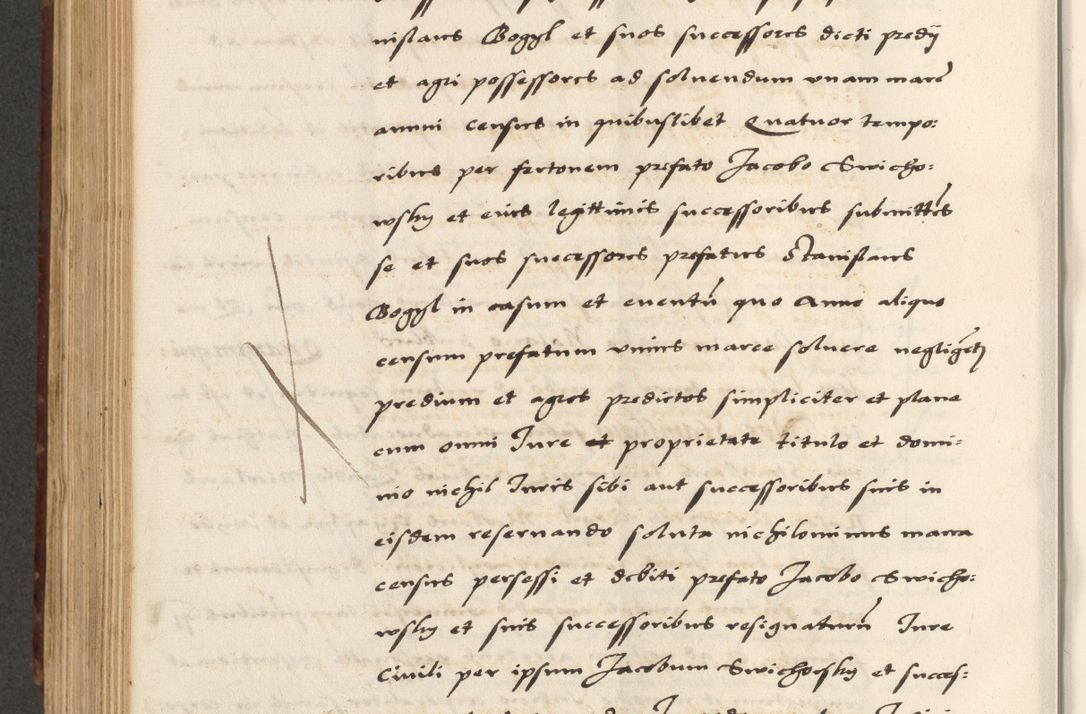 nislaus Gogyl et suos successores dicti predij
et agri possessores ad soluendum vnam marc̃
annui census in quibuslibet Quatuor tempo:
ribus per fertonem prefato Jacobo Swicho:
wsky et eius legittimis successoribus submittẽs
se et suos successores prefatus Stanislaus
Gogyl in casum et euentũ quo Anno aliquo
censum prefatum vnius marce soluere negligeret
predium et agros predictos simpliciter et plane
cum omni Iure et proprietate titulo et domi:
nio nichil Iuris sibi aut successoribus suis in
eisdem reseruando soluta nichilominus marca
census persessi et debiti prefato Jacobo Swicho:
wsky et suis successoribus resignaturũ Iure
Ciuili per ipsum Jacobum Swichowsky et succes: